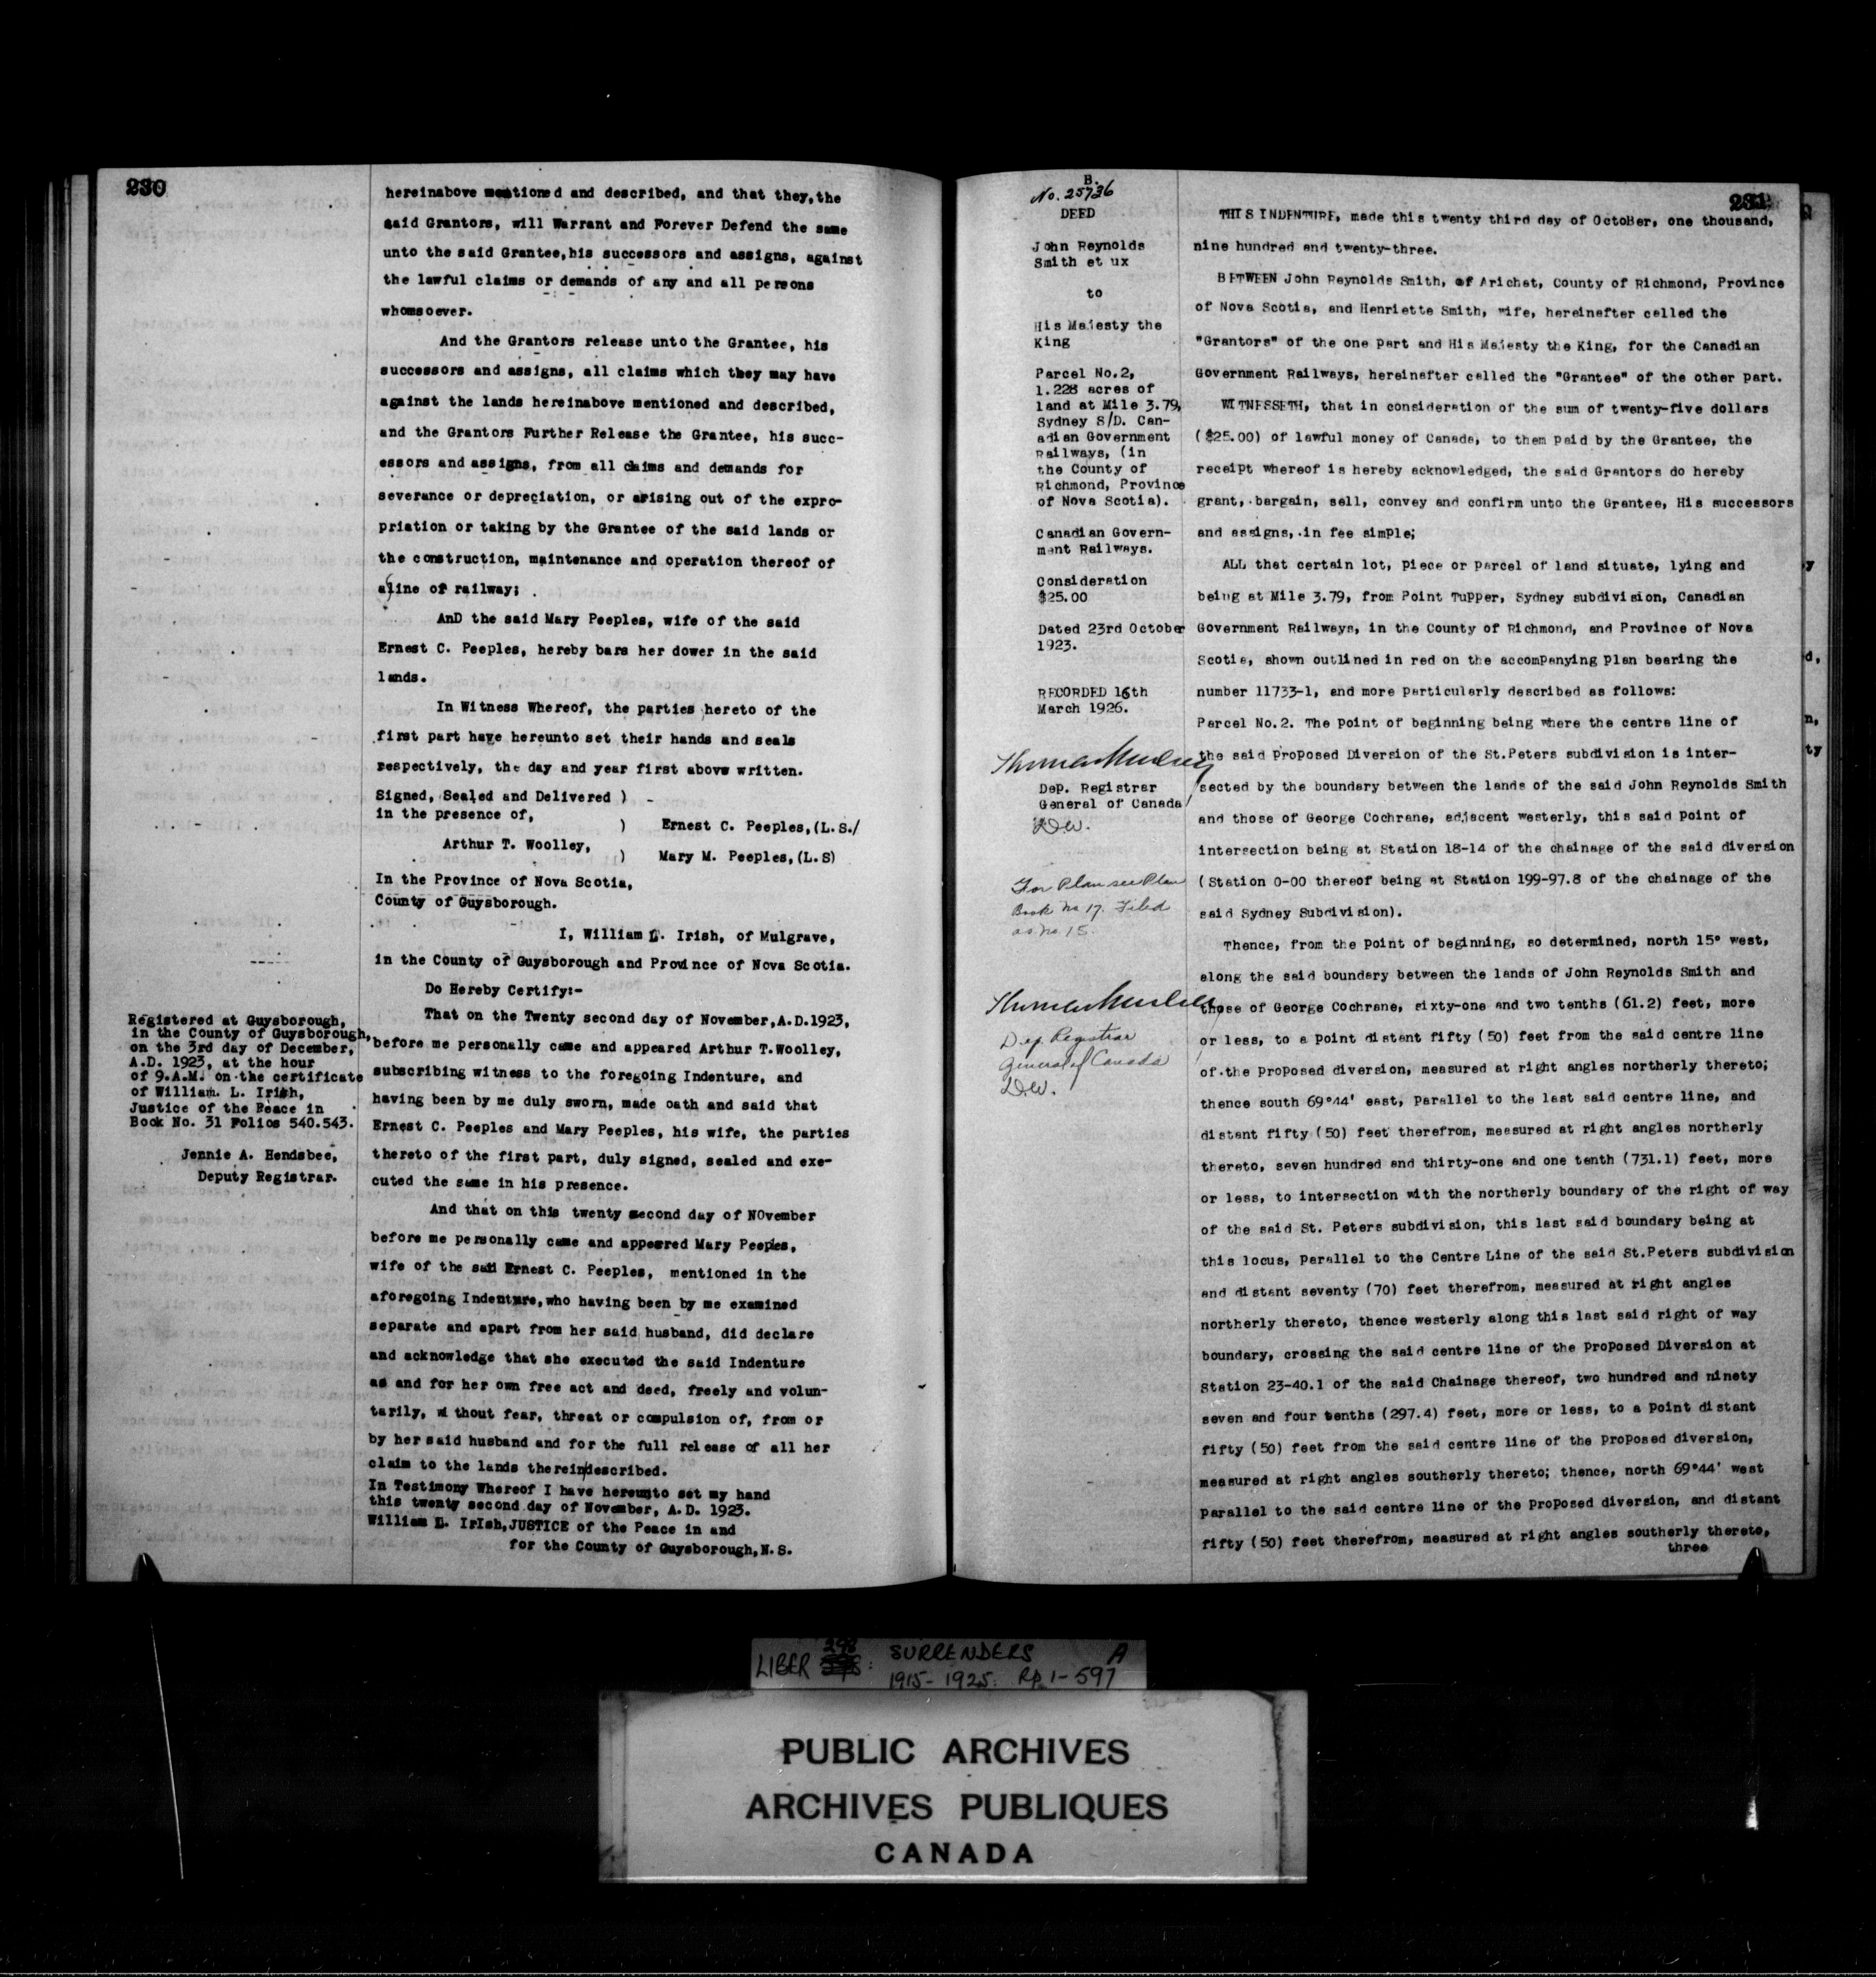 230
hereinabove mentioned and described, and that they, the
said Grantors, will Warrant and Forever Defend the same
unto the said Grantee, his successors and assigns, against
the lawful claims or demands of any and all persons
whomsoever.
And the Grantors release unto the Grantee, his
successors and assigns, all claims which they may have
against the lands hereinabove mentioned and described,
and the Grantors Further Release the Grantee, his succ-
essors and assigns, from all claims and demands for
severance or depreciation, or arising out of the expro-
priation or taking by the Grantee of the said lands or
the construction, maintenance and operation thereof of
a line of railway;
AnD the said Mary Peeples, wife of the said
Ernest C. Peeples, hereby bars her dower in the said
lands.
In Witness Whereof, the parties hereto of the
first part have hereunto set their hands and seals
respectively, the day and year first above written.
Signed, Sealed and Delivered )
in the presence of,
) Ernest C. Peeples, (L.S./
Arthur T. Woolley,
) Mary M. Peeples, (L.S)
In the Province of Nova Scotia,
County of Guysborough.
I, William L. Irish, of Mulgrave,
in the County of Guysborough and Province of Nova Scotia.
Do Hereby Certify:-
That on the Twenty second day of November, A.D.1923,
before me personally came and appeared Arthur T. Woolley,
subscribing witness to the foregoing Indenture, and
having been by me duly sworn, made oath and said that
Ernest C. Peeples and Mary Peeples, his wife, the parties
thereto of the first part, duly signed, sealed and exe-
cuted the same in his presence.
And that on this twenty second day of NOvember
before me personally came and appeared Mary Peeples,
wife of the said Ernest C. Peeples, mentioned in the
aforegoing Indenture, who having been by me examined
separate and apart from her said husband, did declare
and acknowledge that she executed the said Indenture
as and for her own free act and deed, freely and volun-
tarily, without fear, threat or compulsion of, from or
by her said husband and for the full release of all her
claim to the lands therein/described.
In Testimony Whereof I have hereunto set my hand
this twenty second day of November, A.D. 1923.
William L. IrIsh, JUSTICE of the Peace in and
for the County of Guysborough, N.S.
Registered at Guysborough,
in the County of Guysborough,
on the 3rd day of December,
A.D. 1923, at the hour
of 9.A.M. on the certificate
of William. L. Irish,
Justice of the Peace in
Book No. 31 Folios 540.543.
Jennie A. Hendsbee,
Deputy Registrar.
B.
No. 25736
DEED
John Reynolds
Smith et ux
to
His Majesty the
King
Parcel No.2,
1.228 acres of
land at Mile 3.79,
Sydney S/D. Can-
adian Government
Railways, (in
the County of
Richmond, Province
of Nova Scotia).
Canadian Govern-
ment Railways.
Consideration
$25.00
Dated 23rd October
1923.
RECORDED 16th
March 1926.
Thomas Mulvey
Dep. Registrar
General of Canada
For Plan see Plan
Book No 17. Filed
as No. 15.
Thomas Mulvey
Dep. Registrar
General of Canada
231
THIS INDENTURE, made this twenty third day of OctoBer, one thousand,
nine hundred and twenty-three.
BETWEEN John Reynolds Smith, of Arichat, County of Richmond, Province
of Nova Scotia, and Henriette Smith, wife, hereinafter called the
"Grantors" of the one part and His Majesty the King, for the Canadian
Government Railways, hereinafter called the "Grantee" of the other part.
WITNESSETH, that in consideration of the sum of twenty-five dollars
($25.00) of lawful money of Canada, to them paid by the Grantee, the
receipt whereof is hereby acknowledged, the said Grantors do hereby
grant, bargain, sell, convey and confirm unto the Grantee, His successors
and assigns, in fee simple;
ALL that certain lot, piece or parcel of land situate, lying and
being at Mile 3.79, from Point Tupper, Sydney subdivision, Canadian
Government Railways, in the County of Richmond, and Province of Nova
Scotia, shown outlined in red on the accompanying plan bearing the
number 11733-1, and more particularly described as follows:
Parcel No.2. The point of beginning being where the centre line of
the said proposed Diversion of the St.Peters subdivision is inter-
sected by the boundary between the lands of the said John Reynolds Smith
and those of George Cochrane, adjacent westerly, this said point of
intersection being at Station 18-14 of the chainage of the said diversion
(Station 0-00 thereof being at Station 199-97.8 of the chainage of the
said Sydney Subdivision).
Thence, from the point of beginning, so determined, north 15° west,
along the said boundary between the lands of John Reynolds Smith and
those of George Cochrane, sixty-one and two tenths (61.2) feet, more
or less, to a point distant fifty (50) feet from the said centre line
of the proposed diversion, measured at right angles northerly thereto;
thence south 69°44' east, parallel to the last said centre line, and
distant fifty (50) feet therefrom, measured at right angles northerly
thereto, seven hundred and thirty-one and one tenth (731.1) feet, more
or less, to intersection with the northerly boundary of the right of way
of the said St. Peters subdivision, this last said boundary being at
this locus, parallel to the Centre Line of the said St.Peters subdivision
and distant seventy (70) feet therefrom, measured at right angles
northerly thereto, thence westerly along this last said right of way
boundary, crossing the said centre line of the proposed Diversion at
Station 23-40.1 of the said Chainage thereof, two hundred and ninety
seven and four tenths (297.4) feet, more or less, to a point distant
fifty (50) feet from the said centre line of the proposed diversion,
measured at right angles southerly thereto; thence, north 69°44' west
parallel to the said centre line of the proposed diversion, and distant
fifty (50) feet therefrom, measured at right angles southerly thereto,
three
LIBER 298: SURRENDERS A
1915-1925: Pp 1-597
PUBLIC ARCHIVES
ARCHIVES PUBLIQUES
CANADA